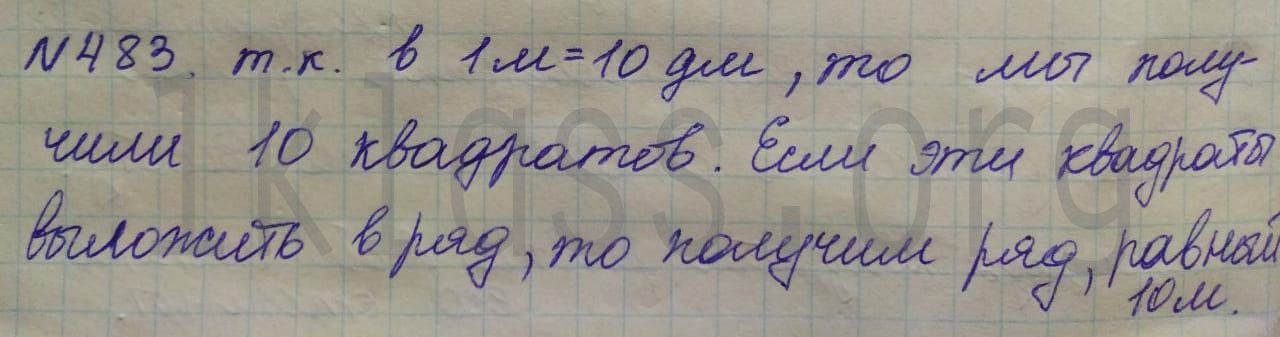 N483. т.к. в 1м=10 дм, то мы полу-
чили 10 квадратов. Если эти квадраты
выложить в ряд, то получим ряд, равный
10м.
1klass.org